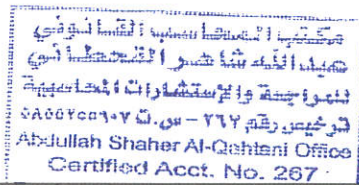 مكتب المحاسب القانوني
عبدالله شاهر القحطاني
للمراجعة والإستشارات المحاسبية
ترخيص رقم ٢٦٧ - س.ت
Abdullah Shaher Al-Qahtani Office
Certified Acct. No. 267